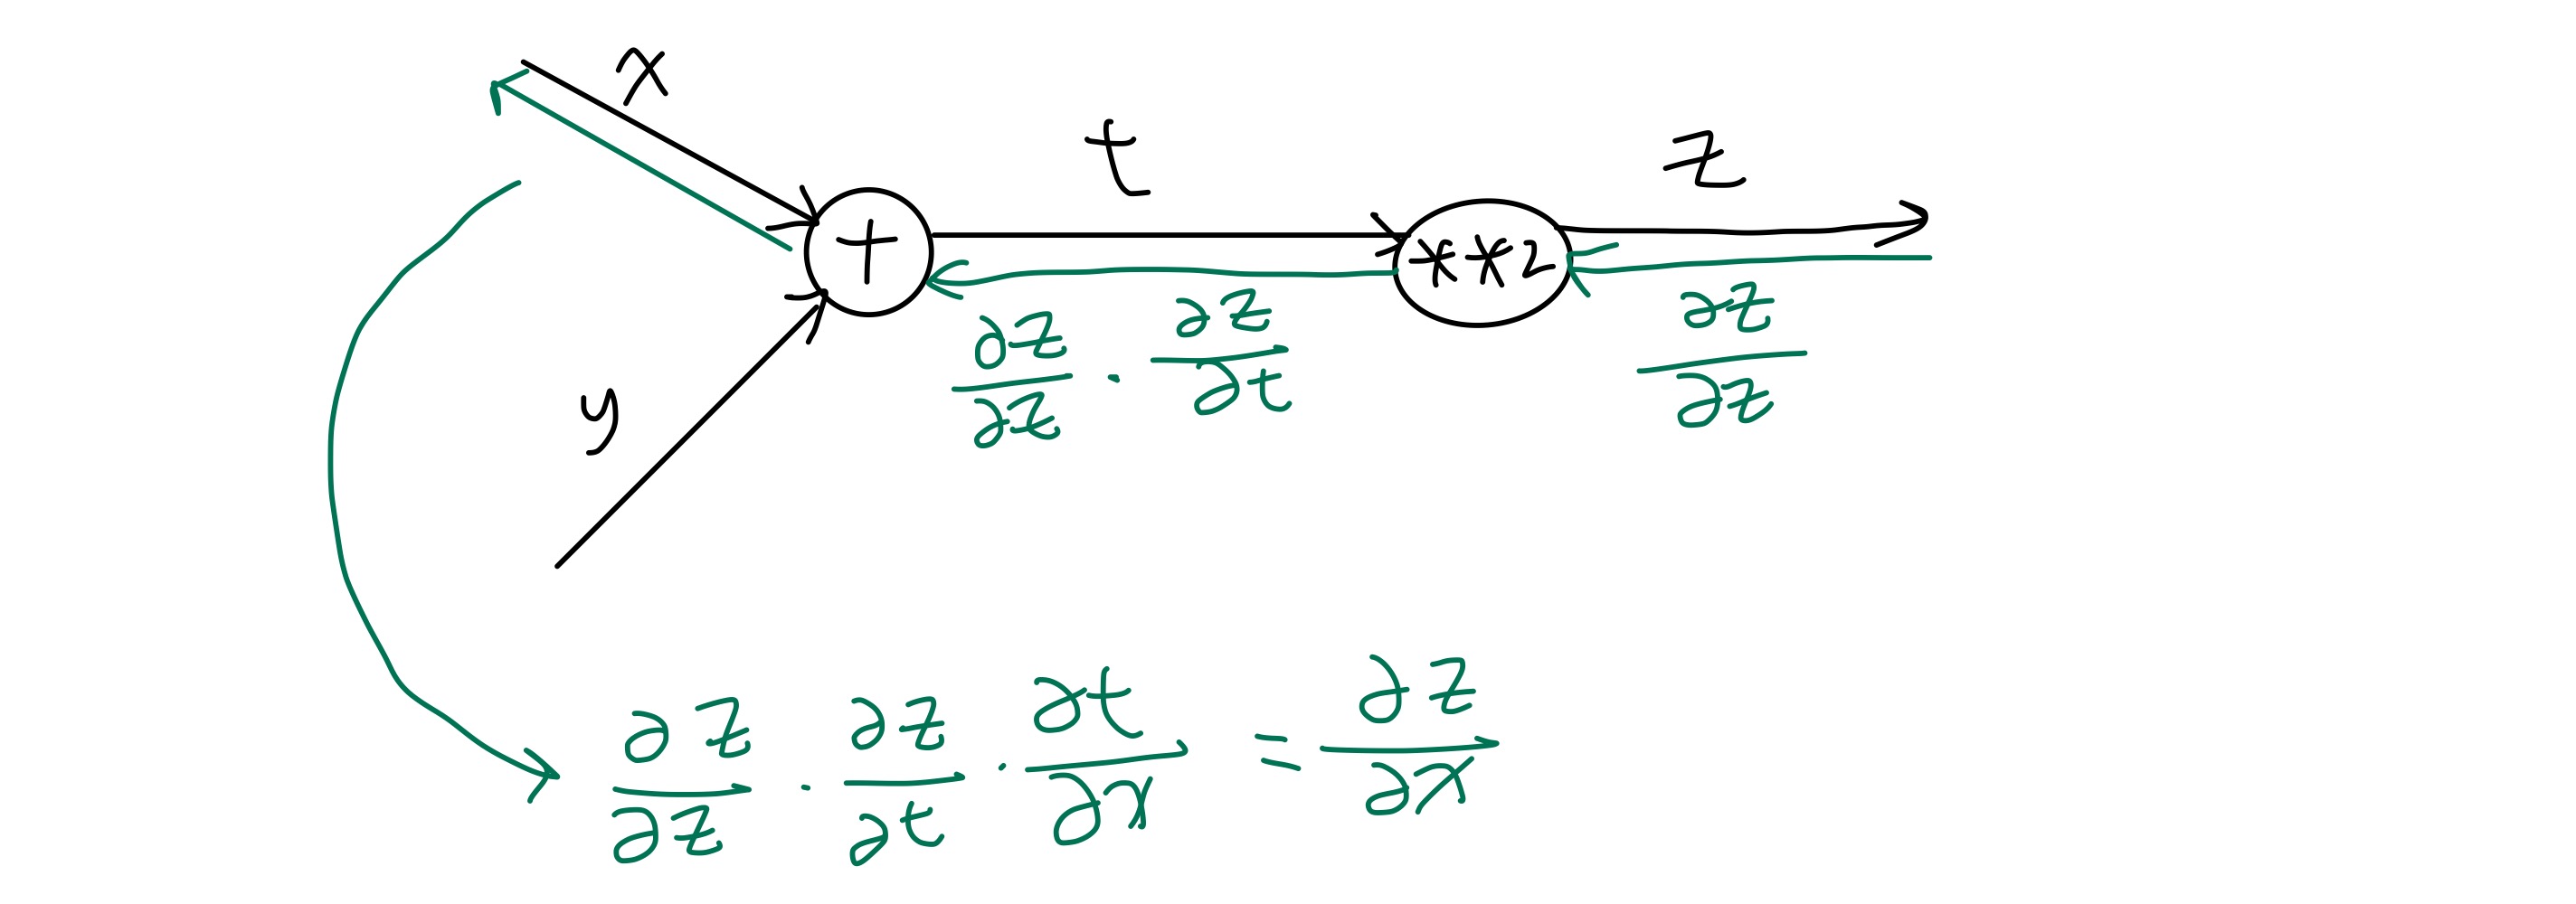 x
t
z
+
**2
y
∂z/∂z · ∂z/∂t
∂z/∂z
∂z/∂z · ∂z/∂t · ∂t/∂x = ∂z/∂x